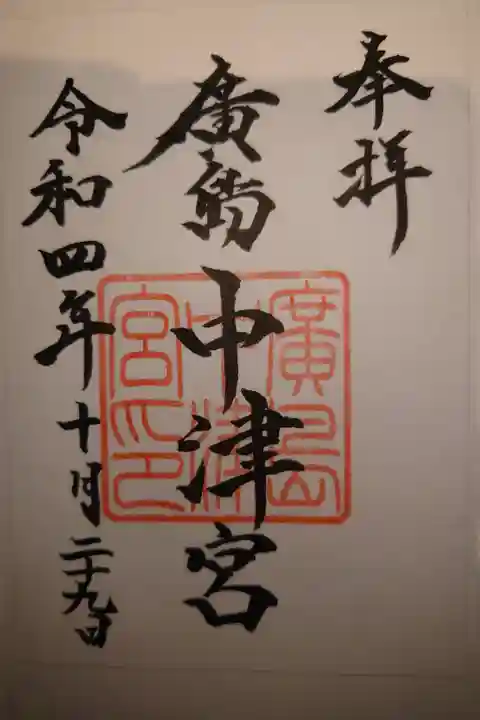 奉拝
廣島中津宮
令和四年十月二十九日
廣島
中津
宮印